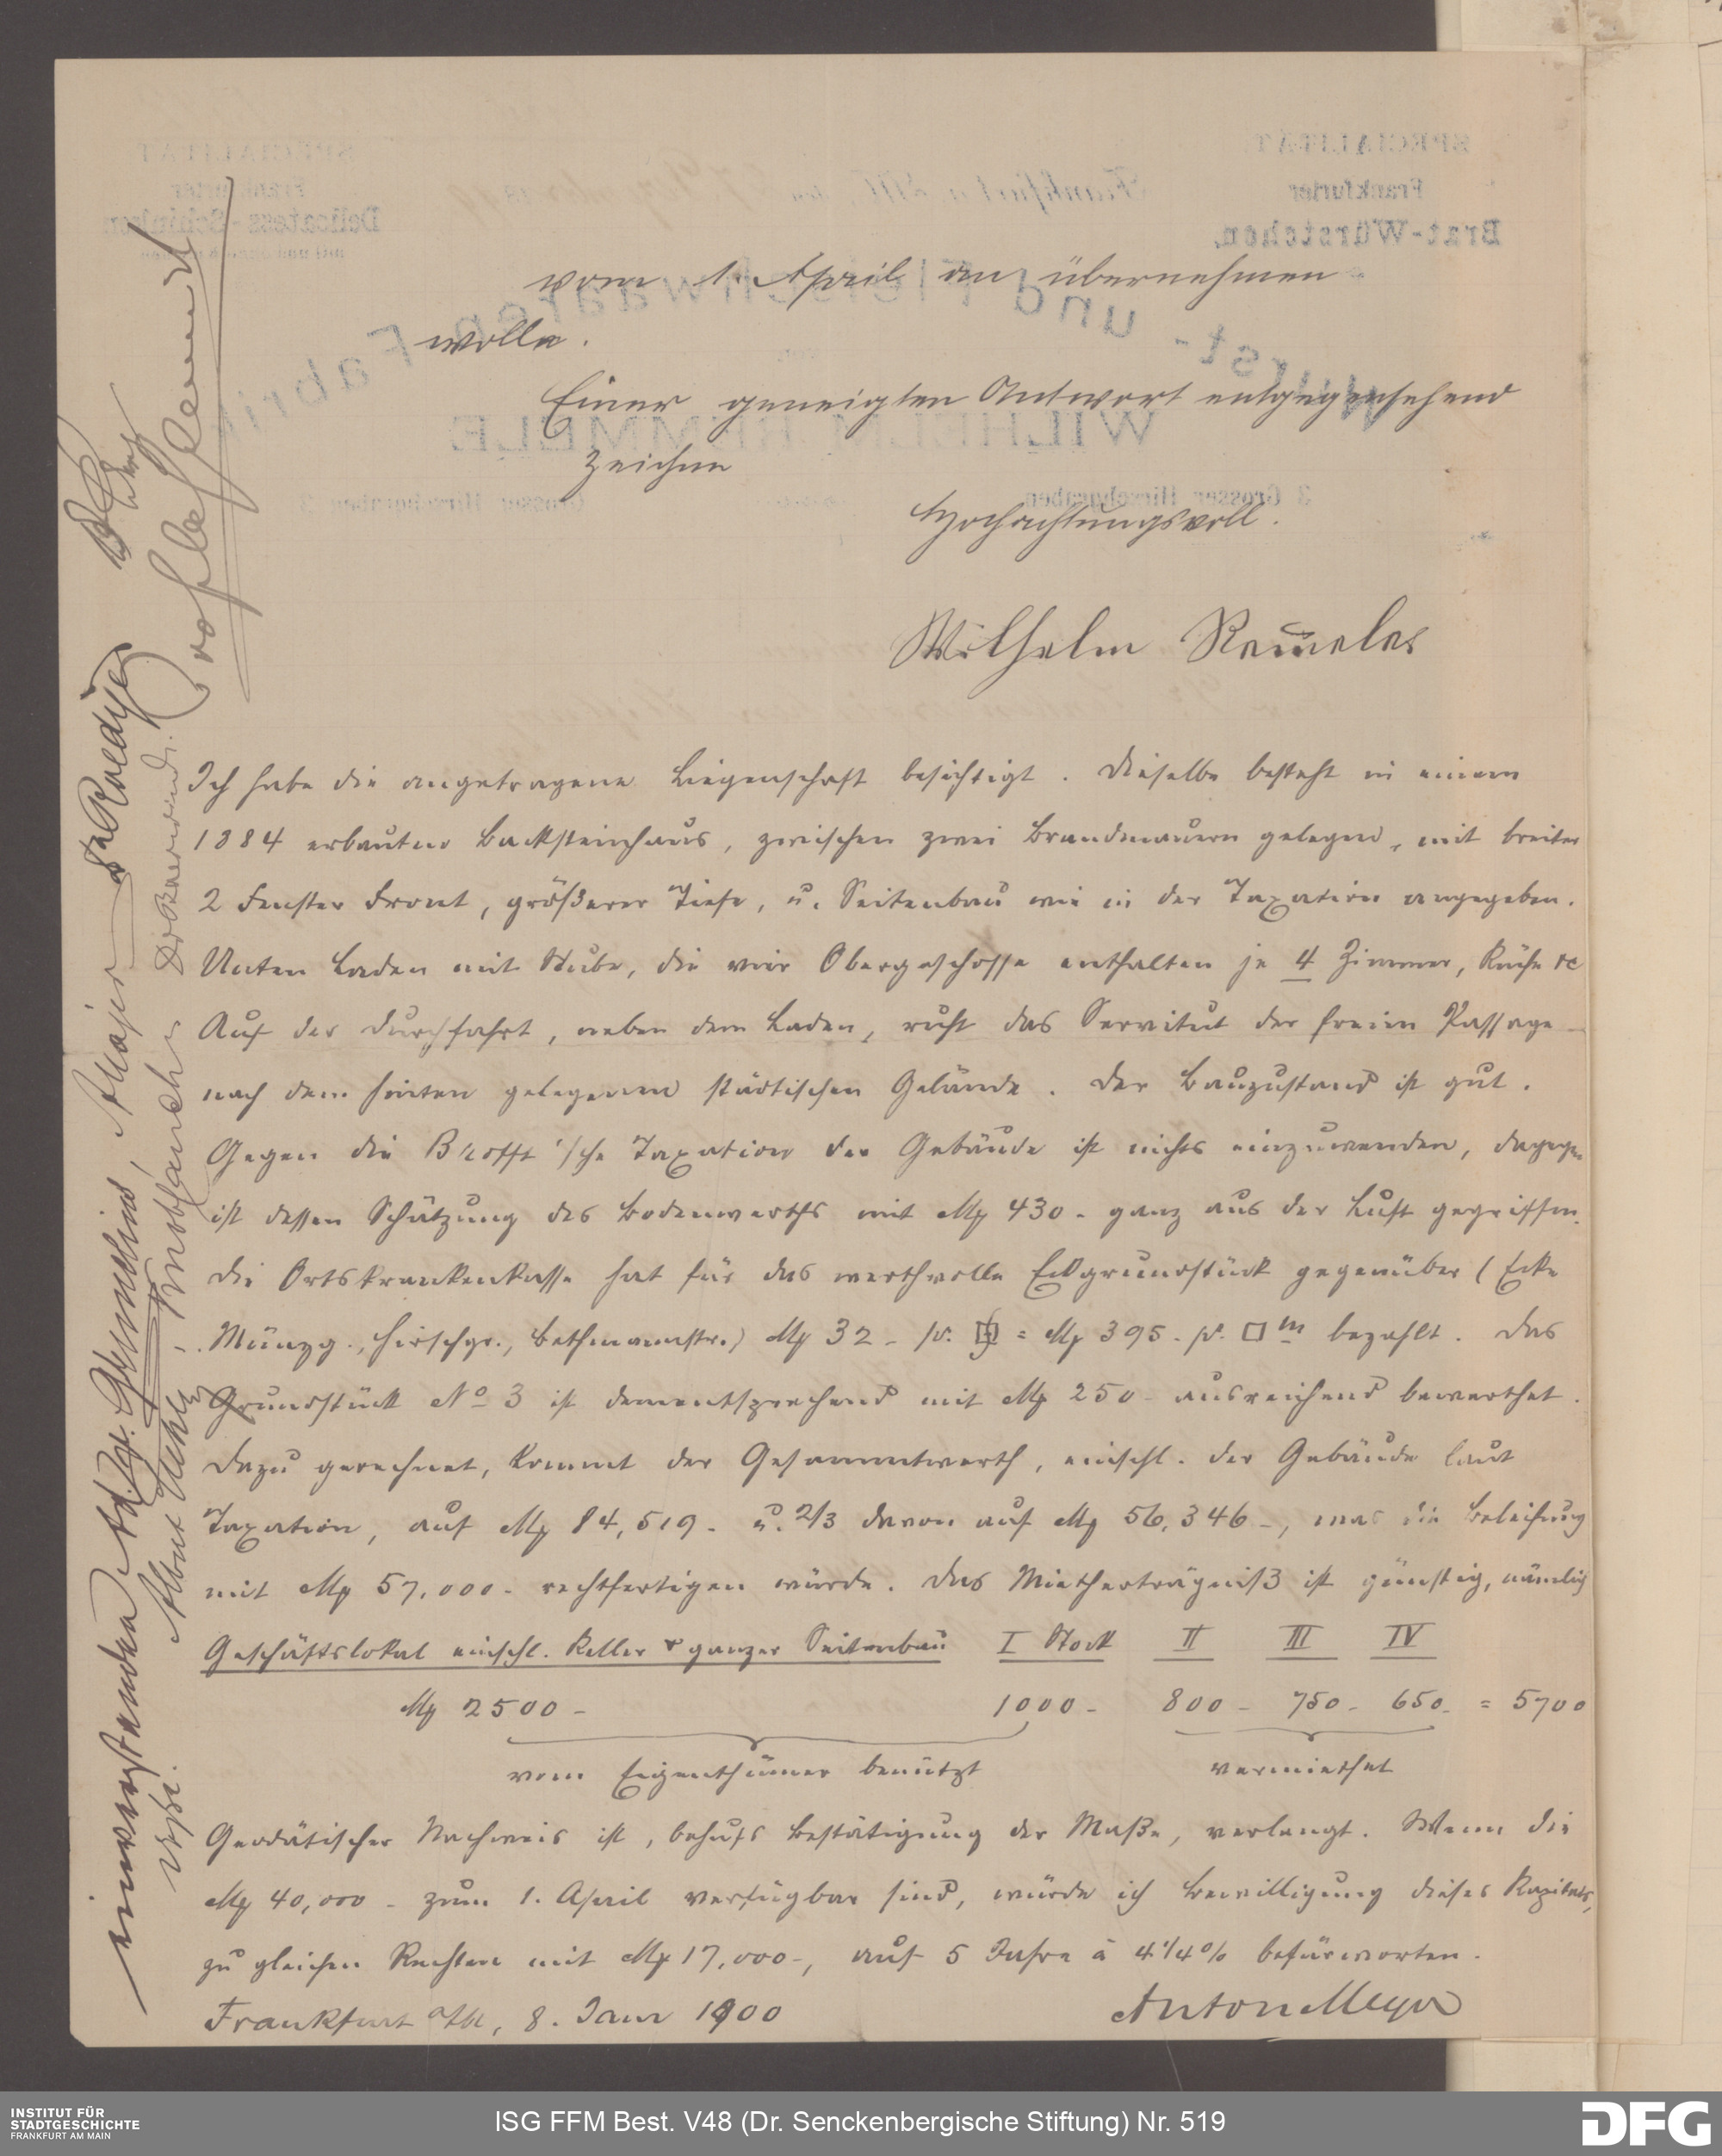 vom 1. April an übernehmen
wolle.
Einer geneigten Antwort entgegensehend
zeichne
Hochachtungsvoll.
Wilhelm Rem̅eles
Ich habe die angetragene Liegenschaft besichtigt. Dieselbe besteht in einem
1884 erbauten Backsteinhaus, zwischen zwei Brandmauern gelegen, mit breiter
2 Fenster Front, größerer Tiefe, u. Seitenbau wie in der Taxation angegeben.
Unten Laden mit Stube, die vier Obergeschosse enthalten je 4 Zimmer, Küche etc
Auf der Durchfahrt, neben dem Laden, ruht das Servitut der freien Passage
nach dem hinten gelegenen städtischen Gelände. Der Bauzustand ist gut.
Gegen die Brofft'sche Taxation der Gebäude ist nichts einzuwenden, dagegen
ist dessen Schätzung des Bodenwerths mit M 430.- ganz aus der Luft gegriffen.
Die Ortskrankenkasse hat für das werthvolle Eckgrundstück gegenüber (Ecke
Münzg., Hirschgr., Bethmannstr.) M 32.- p. = M 395.- p. □ m bezahlt. Das
Grundstück No 3 ist dementsprechend mit M 250.- ausreichend bewerthet.
Dazu gerechnet, kommt der Gesammtwerth, einschl. der Gebäude laut
Taxation, auf M 84,519.- u. 2/3 davon auf M 56,346.-, was die Beleihung
mit M 57,000.- rechtfertigen würde. Das Mietherträgniß ist günstig, nämlich
Geschäftslokal einschl. Keller & ganzer Seitenbau I Stock II III IV
M 2500.- 1000.- 800.- 750.- 650.- = 5700
vom Eigenthümer benützt vermiethet
Geodätischer Nachweis ist, behufs Bestätigung der Maße, verlangt. Wenn die
M 40,000.- zum 1. April verfügbar sind, würde ich Bewilligung dieses Kapitals,
zu gleichen Rechten mit M 17,000.-, auf 5 Jahre à 4 1/4 % befürworten.
Frankfurt a/M, 8. Janr 1900 Anton Meyer
einverstanden
INSTITUT FÜR
STADTGESCHICHTE
FRANKFURT AM MAIN
ISG FFM Best. V48 (Dr. Senckenbergische Stiftung) Nr. 519
DFG